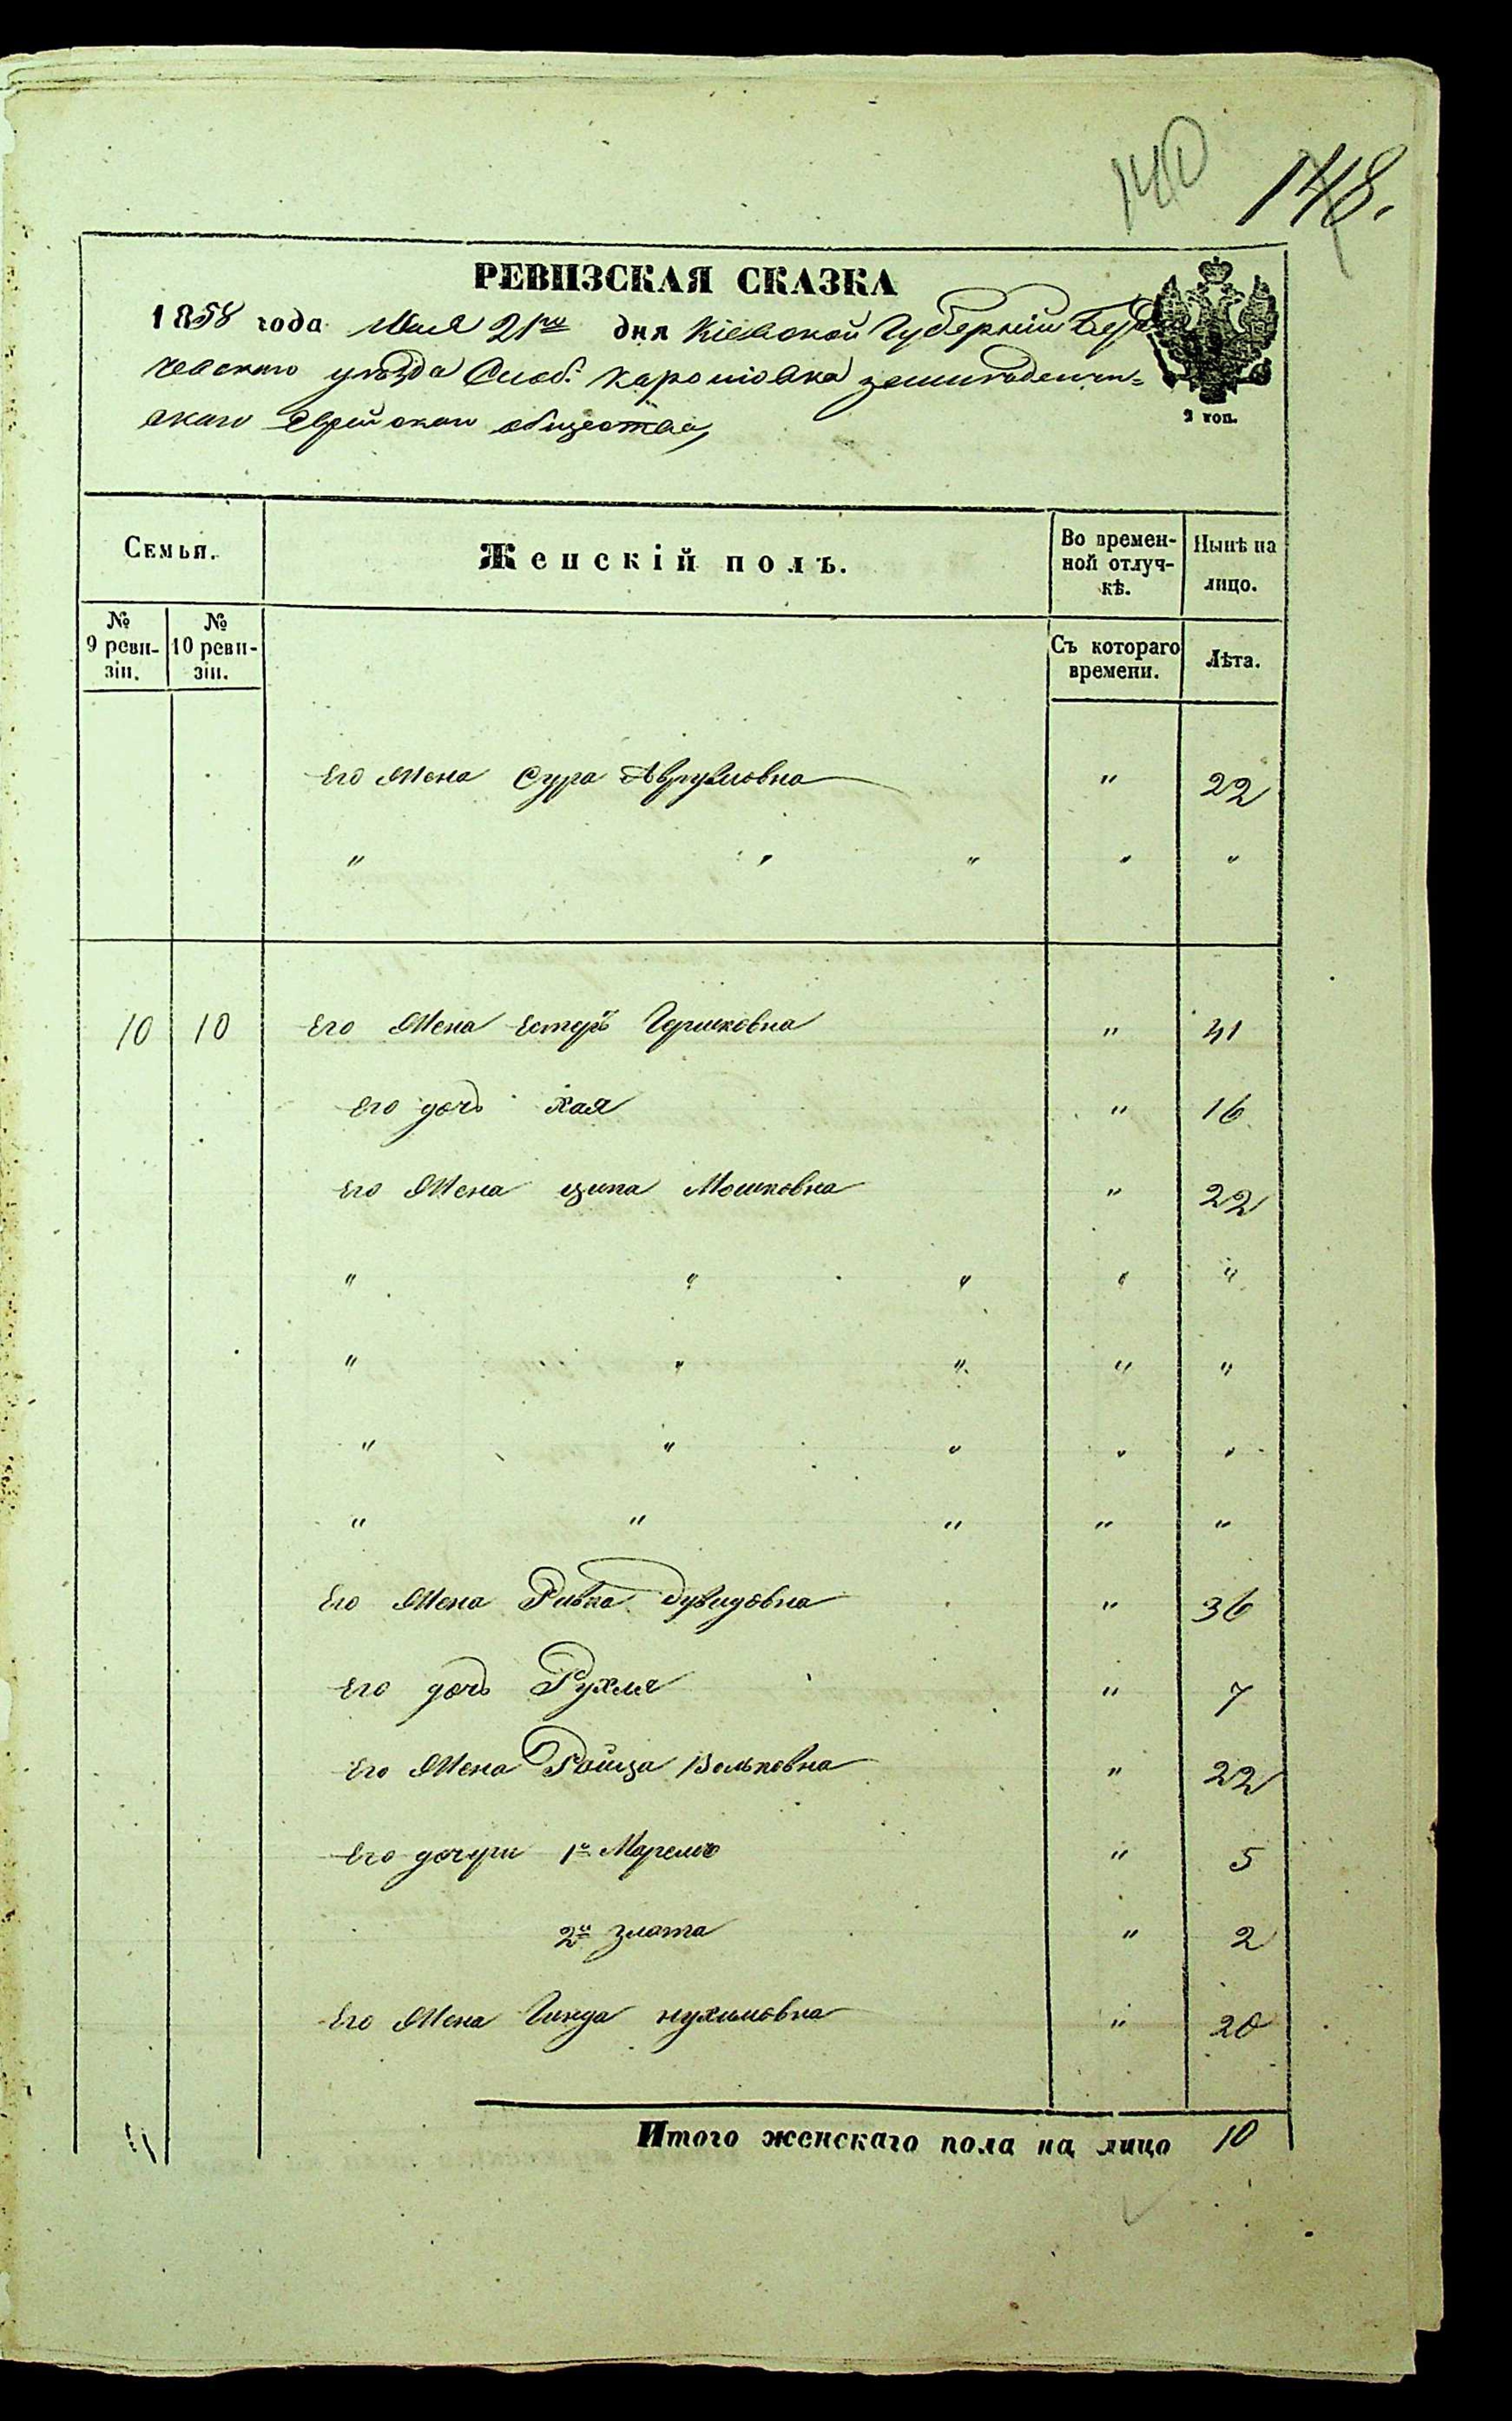 140
148.
РЕВИЗСКАЯ СКАЗКА
1858 года Мая 21го дня Кіевской Губерніи Берди
чевскаго уѣзда Слоб.
скаго Еврейскаго общества
2 коп.
Семьи.
Женскій полъ.
Во времен-
ной отлуч-
кѣ.
Нынѣ на
лицо.
№
9 реви-
зіи.
№
10 реви-
зіи.
Съ котораго
времени.
Лѣта.
Его Жена Сура Аврумовна " 22
" " " " "
10 10 Его Жена Естеръ Гершковна " 41
Его дочь Хая " 16
Его Жена Ципа Мошковна " 22
" " " " "
" " " " "
" " " " "
" " " " "
Его Жена Ривка Дувидовна " 36
Его дочь Рухля " 7
Его Жена Ройза Вольковна " 22
Его дочери 1я " 5
2я Злата " 2
Его Жена Гинда Нухимовна " 20
Итого женскаго пола на лицо 10